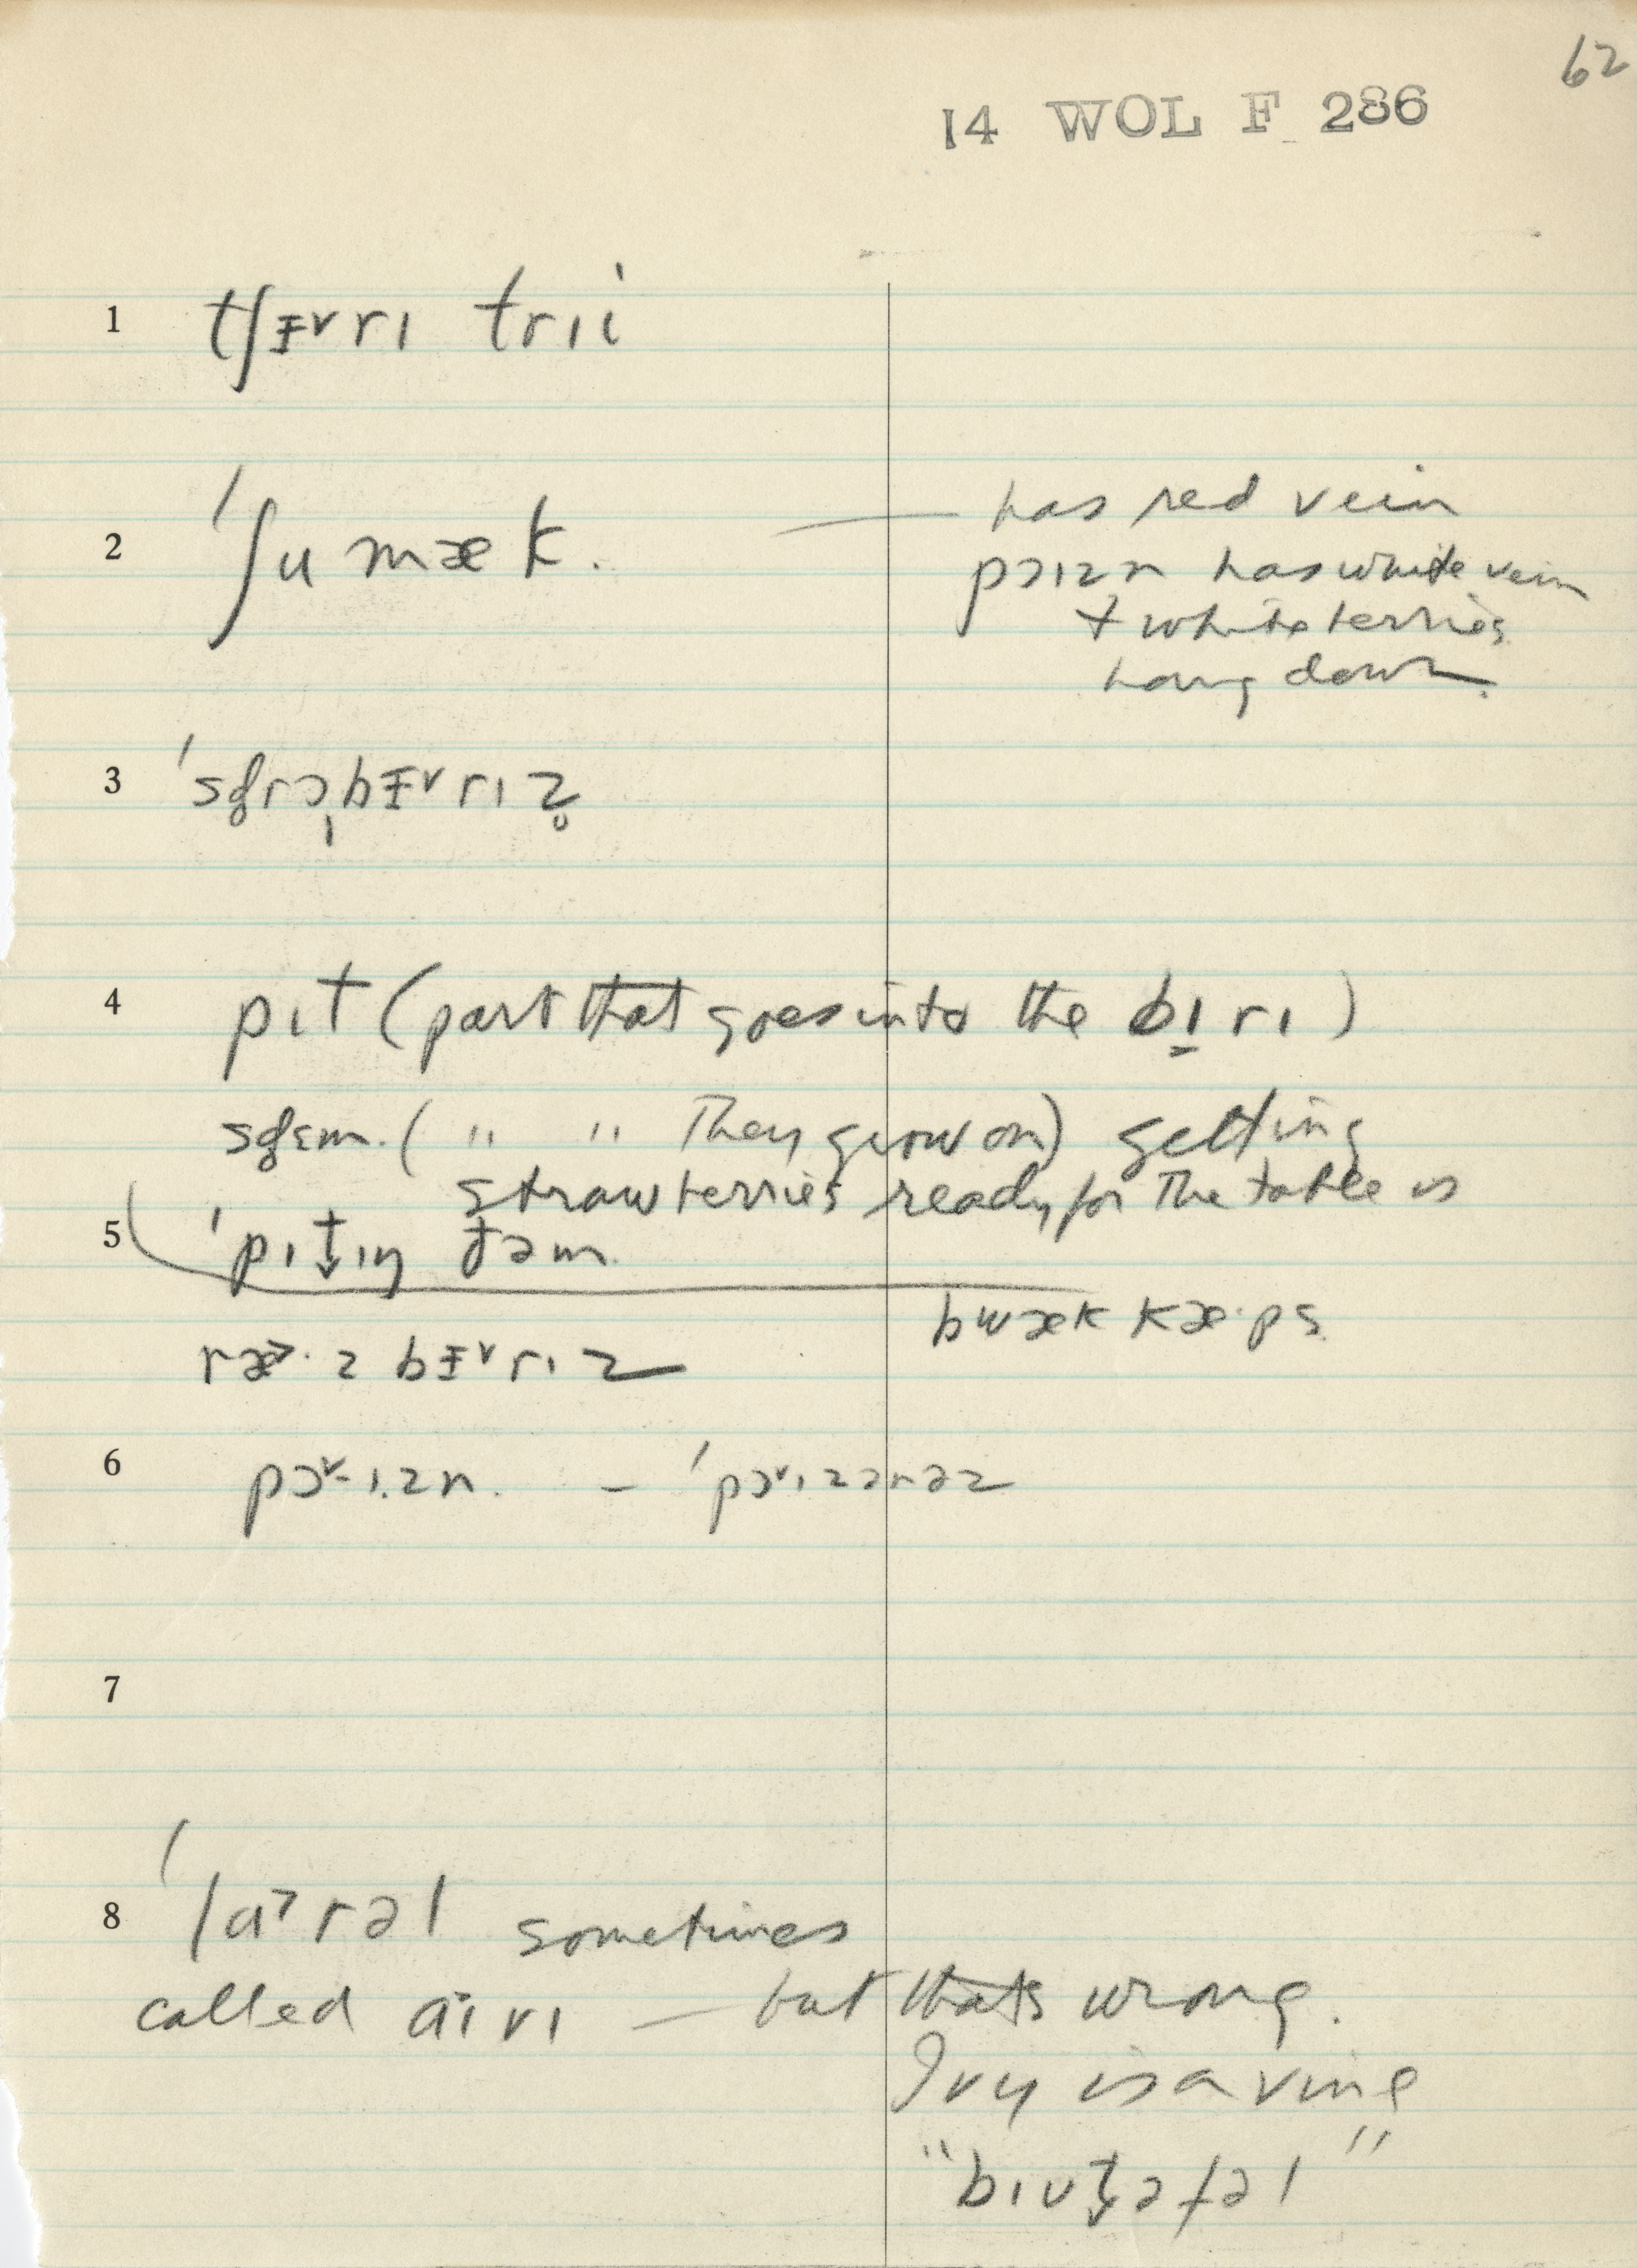 62
14 WOL F 286
1 tʃɛ˅rɪ trɪi
2 ˈʃumæk.
— has red vein
pɔɪzn has white vein
+ white berries
hang down.
3 ˈsd̥rɔ̩bɛ˅rɪz̥
4 pɪt (part that goes into the bɪ̱rɪ)
sd̥ɛm. ( " " They grow on) getting
strawberries ready for the table is
5 ˈpɪt̬ɪŋ ðəm.
bwæk kæ·ps.
ræ˃·zbɛ˅rɪz
6 pɔ˅·ɪ.zn. – ˈpɔ˅ɪzənəz
7
8 ˈlɑ˃rəl sometimes
called aɪvɪ — but thats wrong.
Ivy is a vine
"bɪut̬əfəl"